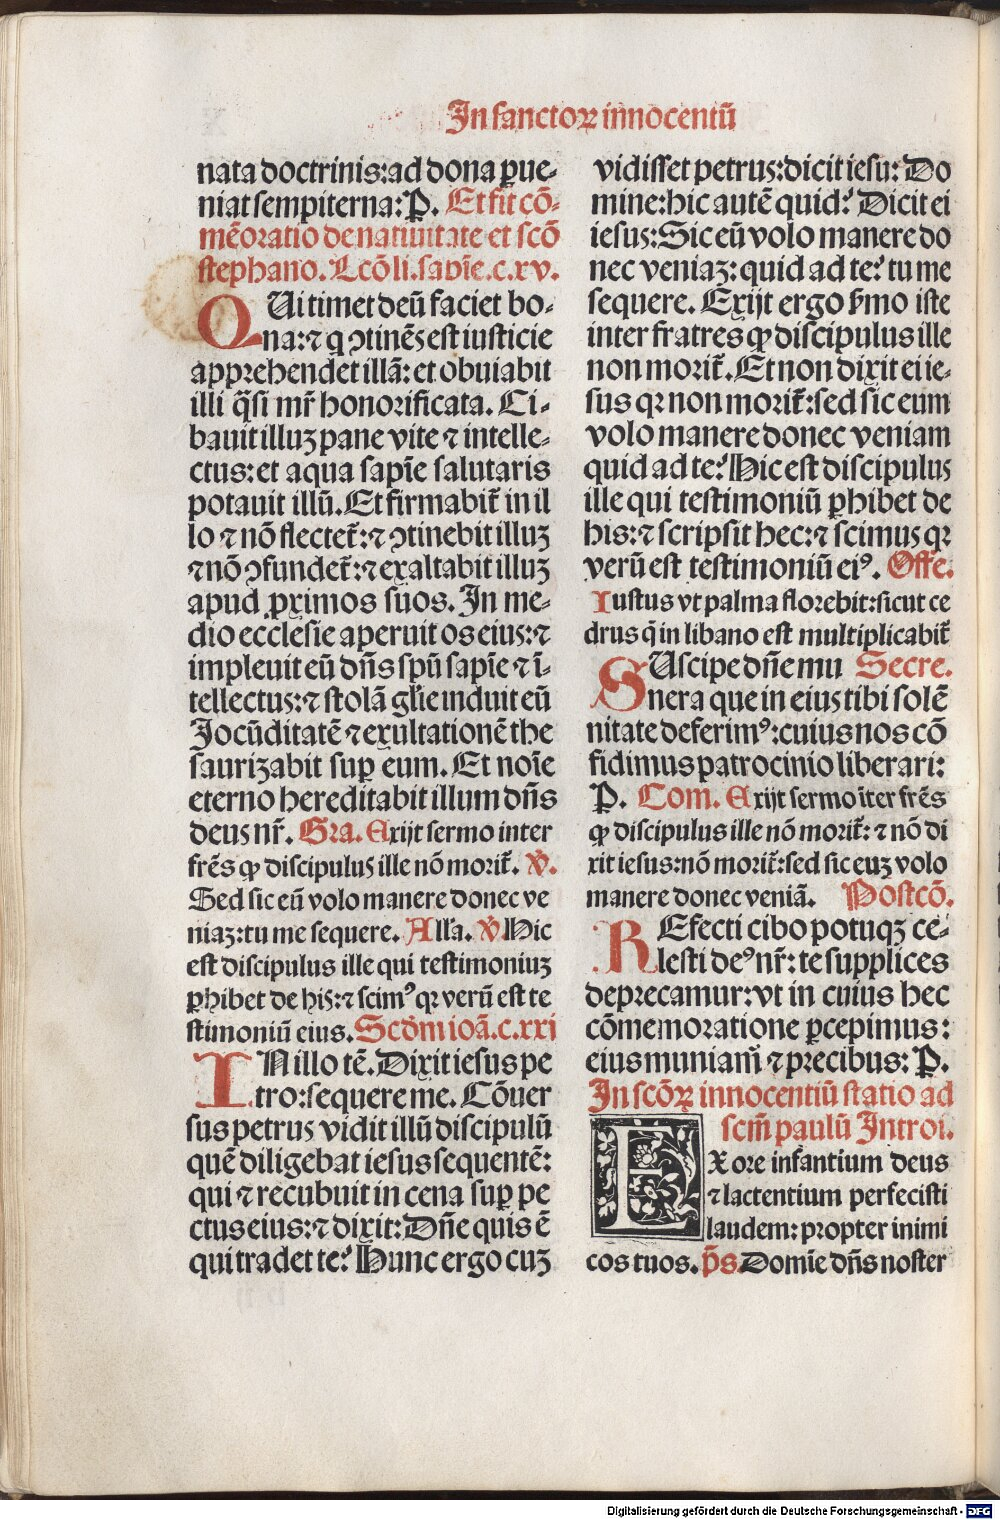 In sanctoꝝ innocentū
nata doctrinis: ad dona ꝑue-
niat sempiterna: P. Et fit cō-
mēoratio de natiuitate et scō
stephano. Lcō li. sapīe. c. xv.
QUi timet deū faciet bo-
na: ⁊ q ꝯtinēs est iusticie
apprehendet illā: et obuiabit
illi q̄si mr̄ honorificata. Ci-
bauit illuꝫ pane vite ⁊ intelle-
ctus: et aqua sapīe salutaris
potauit illū. Et firmabit̄ in il
lo ⁊ nō flectet̄: ⁊ ꝯtinebit illuꝫ
⁊ nō ꝯfundet̄: ⁊ exaltabit illuꝫ
apud ꝓximos suos. In me-
dio ecclesie aperuit os eius: ⁊
impleuit eū dn̄s spū sapīe ⁊ ī-
tellectus: ⁊ stolā glīe induit eū
Jocūditatē ⁊ exultationē the
saurizabit suꝑ eum. Et noīe
eterno hereditabit illum dn̄s
deus nr̄. Gra. Exijt sermo inter
frēs ꝙ discipulus ille nō morit̄. v̄.
Sed sic eū volo manere donec ve
niaꝫ: tu me sequere. Alla. v̄ Hic
est discipulus ille qui testimoniuꝫ
ꝑhibet de his: ⁊ scimꝰ qꝛ verū est te
stimoniū eius. Scdm ioā. c. xxi
IN illo tē. Dixit iesus pe
tro: sequere me. Cōuer
sus petrus vidit illū discipulū
quē diligebat iesus sequentē:
qui ⁊ recubuit in cena suꝑ pe
ctus eius: ⁊ dixit: Dn̄e quis ē
qui tradet te? Hunc ergo cuꝫ
vidisset petrus: dicit iesu: Do
mine: hic autē quid? Dicit ei
iesus: Sic eū volo manere do
nec veniaꝫ: quid ad te? tu me
sequere. Exijt ergo s̄mo iste
inter fratres ꝙ discipulus ille
non morit̄. Et non dixit ei ie-
sus qꝛ non morit̄: sed sic eum
volo manere donec veniam
quid ad te? Hic est discipulus
ille qui testimoniū ꝑhibet de
his: ⁊ scripsit hec: ⁊ scimus qꝛ
verū est testimoniū eiꝰ. Offe.
Iustus vt palma florebit: sicut ce
drus q̄ in libano est multiplicabit̄
SUscipe dn̄e mu Secre.
nera que in eius tibi solē
nitate deferimꝰ: cuius nos cō
fidimus patrocinio liberari:
P. Com. Exijt sermo īter frēs
ꝙ discipulus ille nō morit̄: ⁊ nō di
xit iesus: nō morit̄: sed sic euꝫ volo
manere donec veniā. Postcō.
REfecti cibo potuqꝫ ce-
lesti deꝰ nr̄: te supplices
deprecamur: vt in cuius hec
cōmemoratione ꝑcepimus:
eius muniam̄ ⁊ precibus: P.
In scōꝝ innocentiū statio ad
scm̄ paulū Introi.
EX ore infantium deus
⁊ lactentium perfecisti
laudem: propter inimi
cos tuos. p̄s. Domīe dn̄s noster
Digitalisierung gefördert durch die Deutsche Forschungsgemeinschaft - DFG